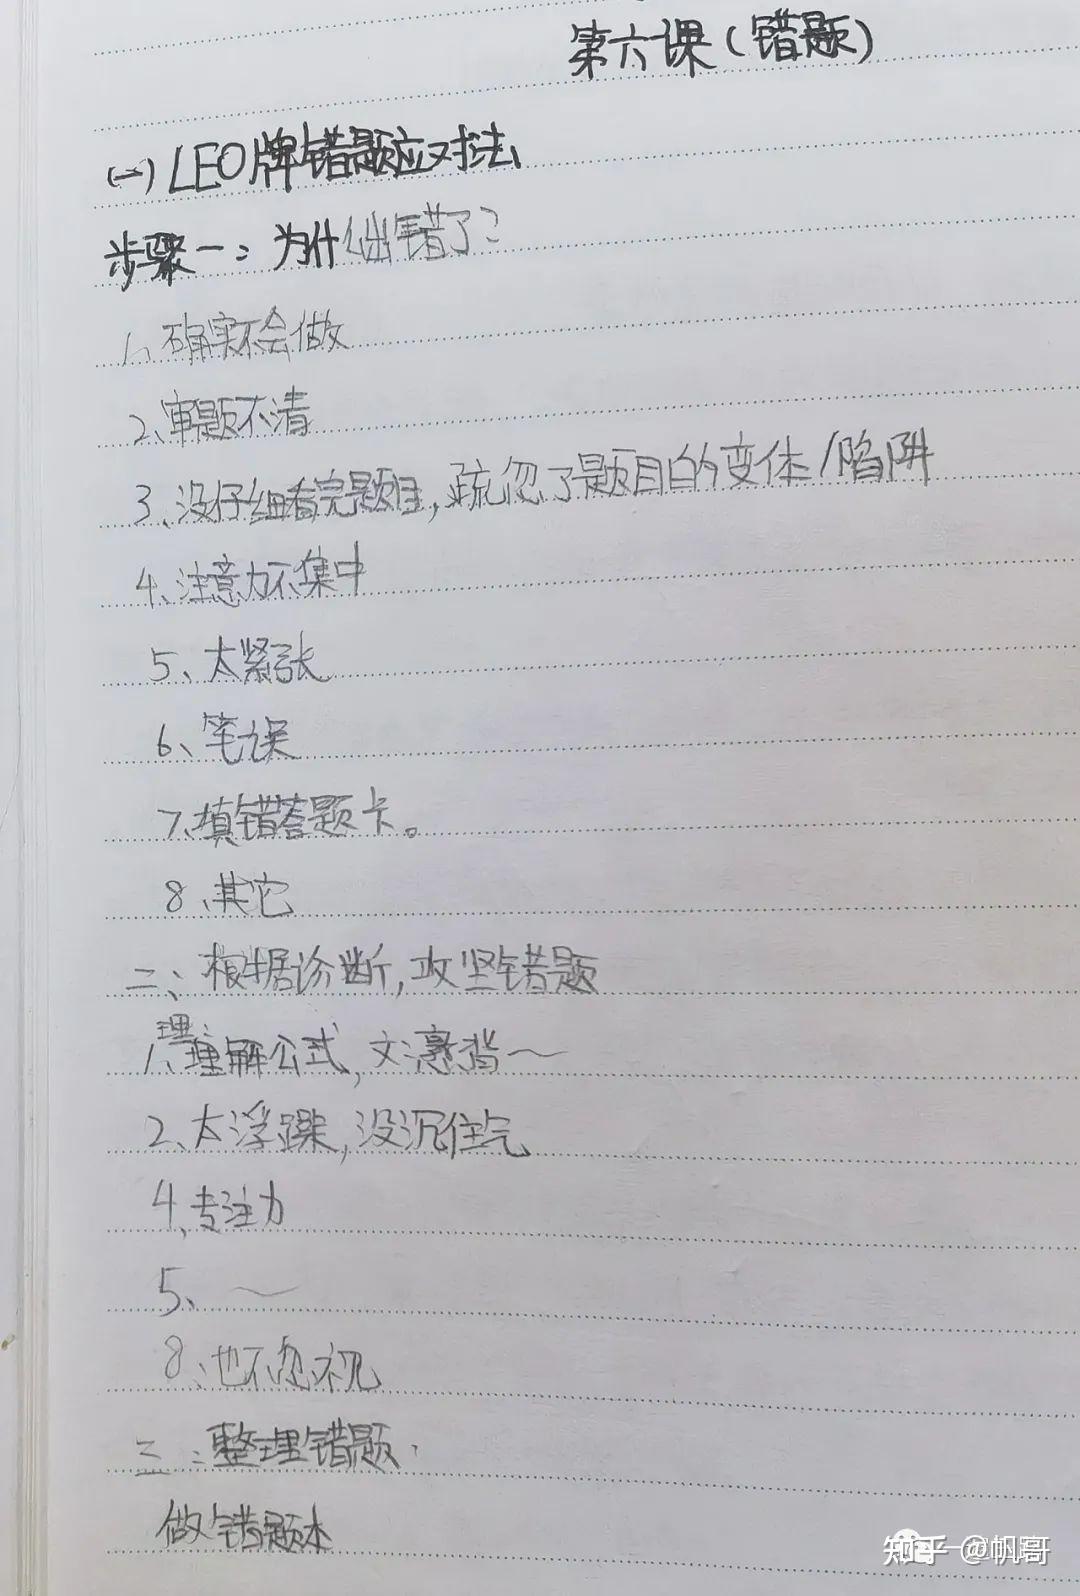 第六课(错题)
(一)LEO牌错题应对法
步骤一:为什么出错了?
1、确实不会做
2、审题不清
3、没仔细看完题目,疏忽了题目的变体/陷阱
4、注意力不集中
5、太紧张
6、笔误
7、填错答题卡。
8、其它
二、根据诊断,攻坚错题
1、理解公式,文 背～
2、太浮躁,没沉住气
4、专注力
5、～
8、也不忽视
三、整理错题.
做错题本
知乎 @帆哥